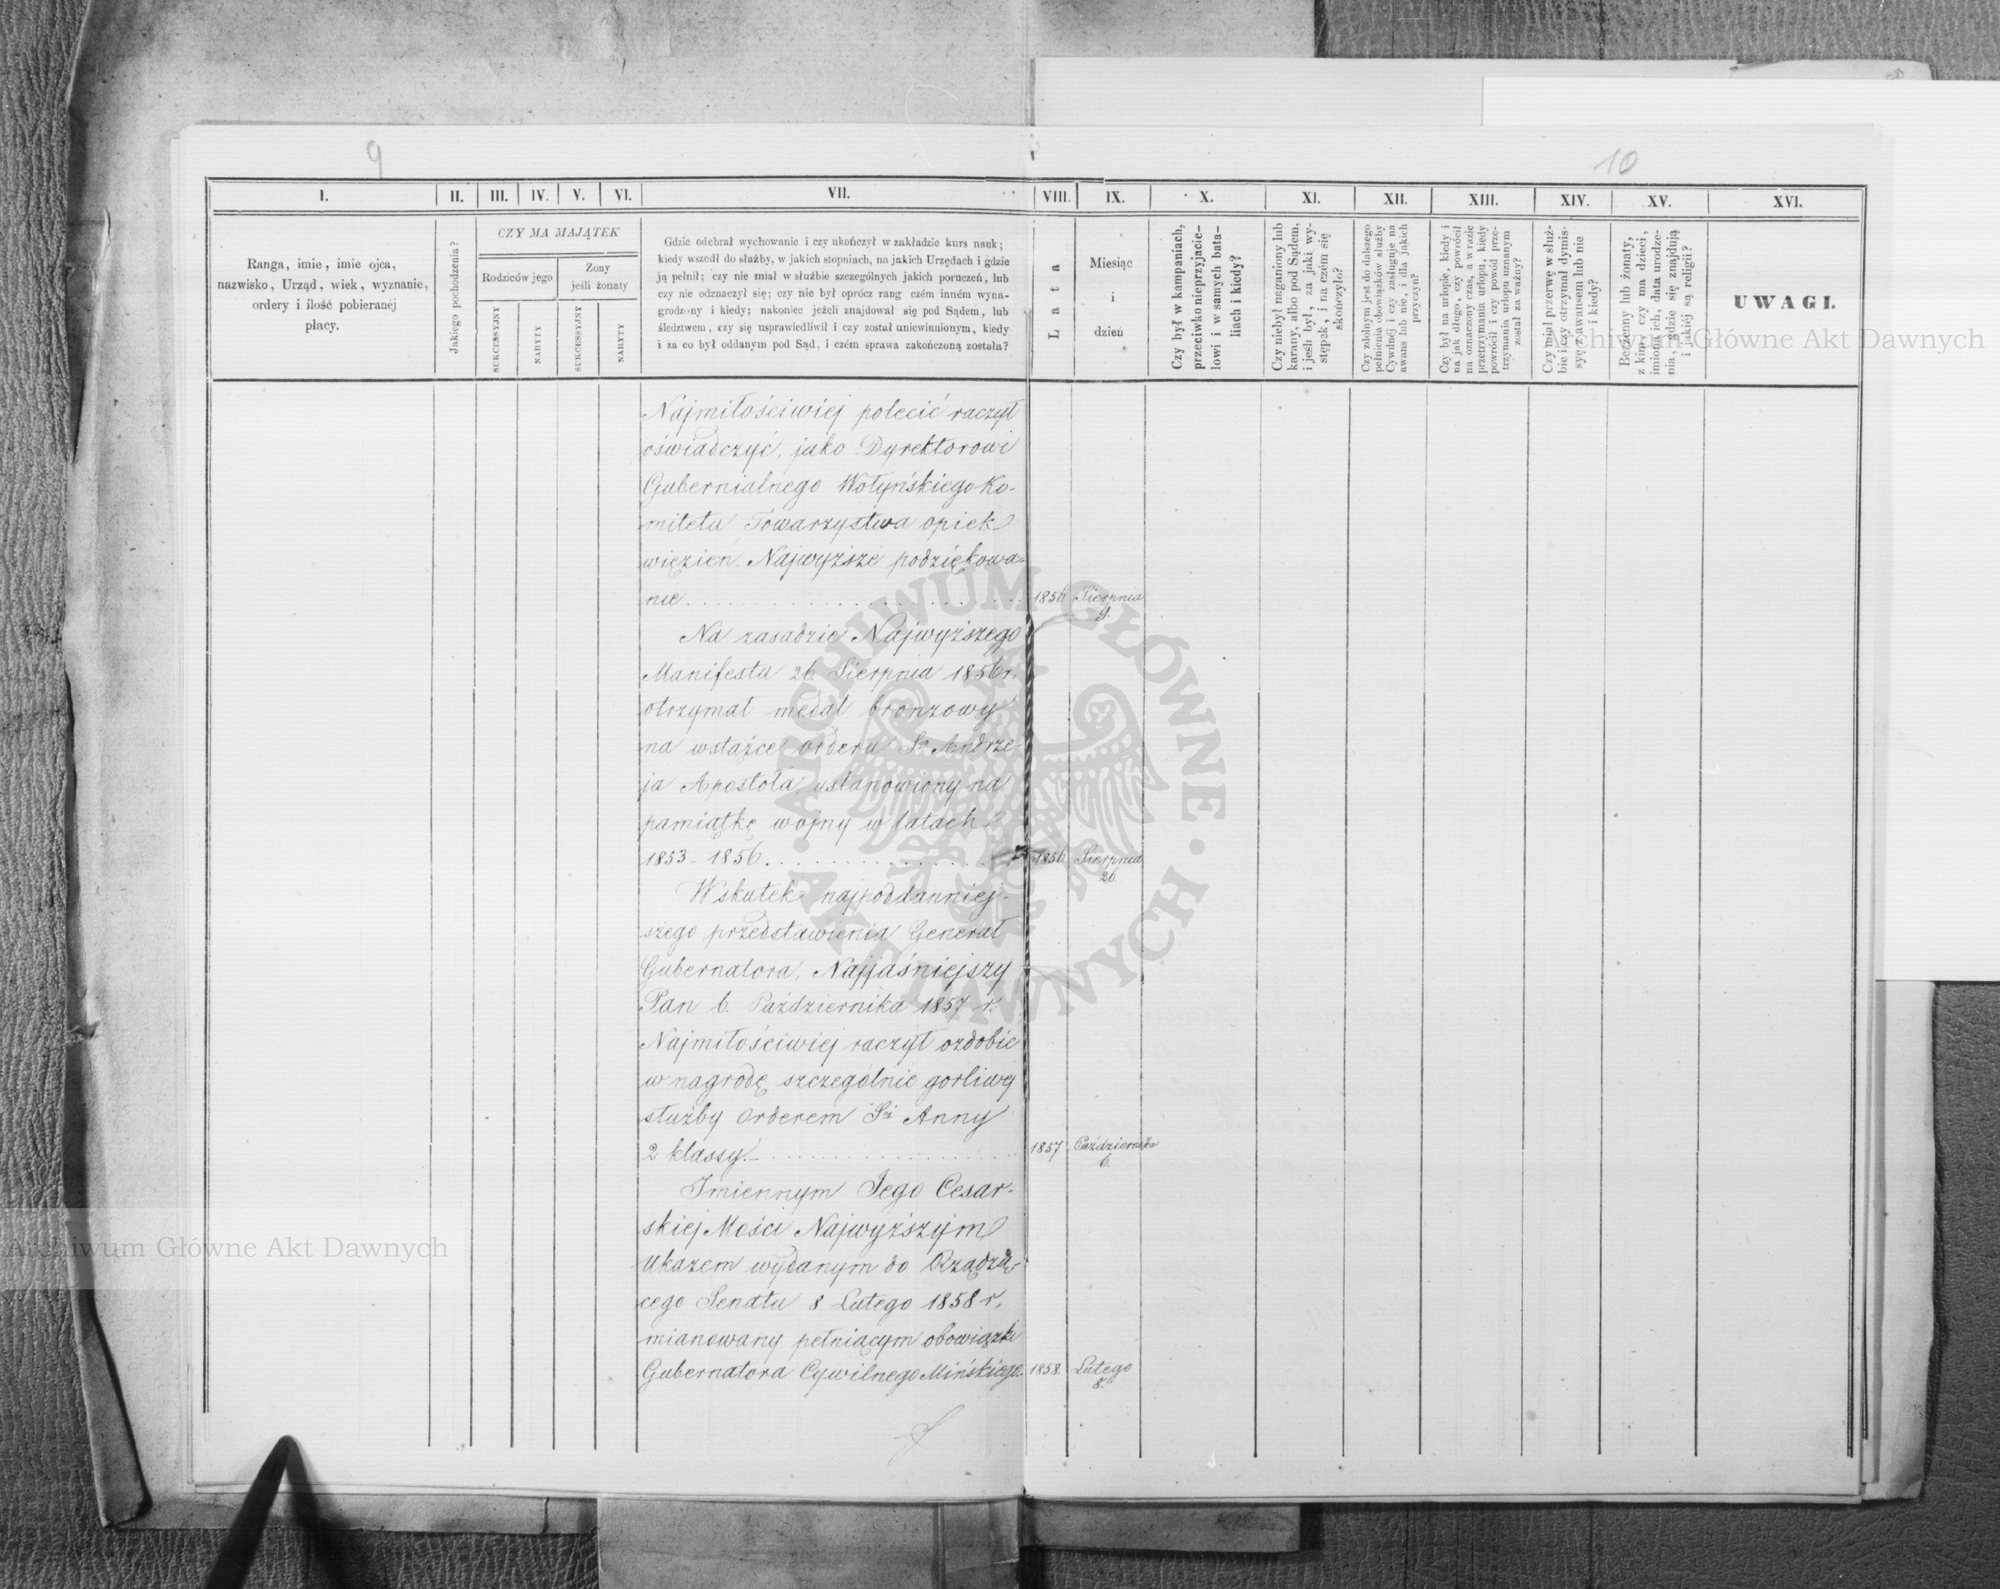 9
10
I.
II.
III.
IV.
V.
VI.
VII.
VIII.
IX.
X.
XI.
XII.
XIII.
XIV.
XV.
XVI.
Ranga, imie, imie ojca,
nazwisko, Urząd, wiek, wyznanie,
ordery i ilość pobieranéj
płacy.
Jakiego pochodzenia?
CZY MA MAJĄTEK
Rodziców jego
Żony
jeśli żonaty
SUKCESSYJNY
NABYTY
SUKCESSYJNY
NABYTY
Gdzie odebrał wychowanie i czy ukończył w zakładzie kurs nauk;
kiedy wszedł do służby, w jakich stopniach, na jakich Urzędach i gdzie
ją pełnił; czy nie miał w służbie szczególnych jakich poruczeń, lub
czy nie odznaczył się; czy nie był oprócz rang czém inném wyna-
grodzony i kiedy; nakoniec jeżeli znajdował się pod Sądem, lub
śledztwem, czy się usprawiedliwił i czy został uniewinnionym, kiedy
i za co był oddanym pod Sąd, i czém sprawa zakończoną została?
Lata
Miesiąc
i
dzień
Czy był w kampaniach,
przeciwko nieprzyjacie-
lowi i w samych bata-
liach i kiedy?
Czy niebył naganiony lub
karany, albo pod Sądem,
i jeśli był, za jaki wy-
stępek, i na czém się
skończyło?
Czy zdolnym jest do dalszego
pełnienia obowiązków służby
Cywilnéj i czy zasługuje na
awans lub nie, i dla jakich
przyczyn?
Czy był na urlopie, kiedy i
na jak długo, czy powrócił
na oznaczony czas, a w razie
przetrzymania urlopu, kiedy
powrócił i czy powód prze-
trzymania urlopu uznanym
został za ważny?
Czy miał przerwę w służ-
bie i czy otrzymał dymis-
syę z awansem lub nie
i kiedy?
Bezżenny lub żonaty,
z kim, czy ma dzieci,
imiona ich, data urodze-
nia, gdzie się znajdują
i jakiéj są religii?
UWAGI.
Najmiłościwiej polecić raczył
oświadczyć, jako Dyrektorowi
Gubernialnego Wołyńskiego Ko-
mitetu Towarzystwa opiek
więzień, Najwyższe podziękowa-
nie . . . 1856 Sierpnia
9.
Na zasadzie Najwyższego
Manifestu 26 Sierpnia 1856 r.
otrzymał medal bronzowy
na wstążce orderu Sgo Andrze-
ja Apostoła, ustanowiony na
pamiątkę wojny w latach
1853 - 1856 . . . 1856 Sierpnia
26.
Wskutek najpoddanniej-
szego przedstawienia Generał
Gubernatora, Najjaśniejszy
Pan 6. Października 1857 r.
Najmiłościwiej raczył ozdobić
w nagrodę szczególnie gorliwej
służby orderem Sej Anny
2 klassy. . . . 1857 Października
6.
Imiennym Jego Cesar-
skiej Mości Najwyższym
Ukazem wydanym do Rządzą-
cego Senatu 8 Lutego 1858 r.
mianowany pełniącym obowiązki
Gubernatora Cywilnego Mińskiego. 1858. Lutego
8.
Archiwum Główne Akt Dawnych
Archiwum Główne Akt Dawnych
ARCHIWUM GŁÓWNE AKT DAWNYCH